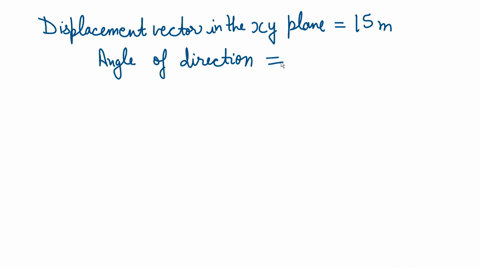 Displacement vector in the xy plane = 15 m
Angle of direction =